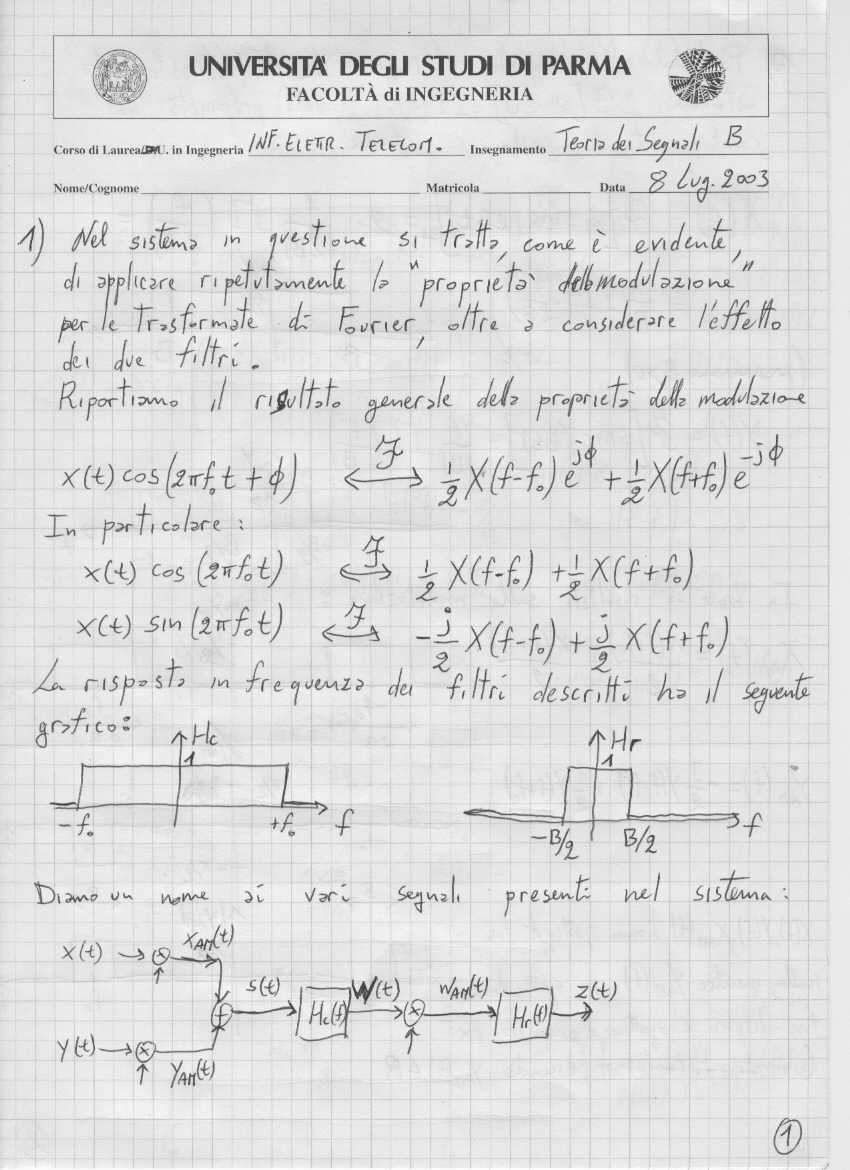 UNIVERSITA' DEGLI STUDI DI PARMA
FACOLTÀ di INGEGNERIA
Corso di Laurea/D.U. in Ingegneria INF. ELETTR. TELECOM. Insegnamento Teoria dei Segnali B
Nome/Cognome Matricola Data 8 Lug. 2003
1) Nel sistema in questione si tratta, come è evidente,
di applicare ripetutamente la "proprietà della modulazione"
per le Trasformate di Fourier, oltre a considerare l'effetto
dei due filtri.
Riportiamo il risultato generale della proprietà della modulazione
x(t) cos(2πf₀t + ϕ) ⟷ℱ 1/2 X(f-f₀) e^{jϕ} + 1/2 X(f+f₀) e^{-jϕ}
In particolare:
x(t) cos(2πf₀t) ⟷ℱ 1/2 X(f-f₀) + 1/2 X(f+f₀)
x(t) sin(2πf₀t) ⟷ℱ -j/2 X(f-f₀) + j/2 X(f+f₀)
La risposta in frequenza dei filtri descritti ha il seguente
grafico:
Hc Hr
1 1
-f₀ +f₀ f -B/2 B/2 f
Diamo un nome ai vari segnali presenti nel sistema:
x(t) × x_AM(t)
s(t) W(t) w_AM(t) z(t)
+ Hc(f) × Hr(f)
y(t) × y_AM(t)
1